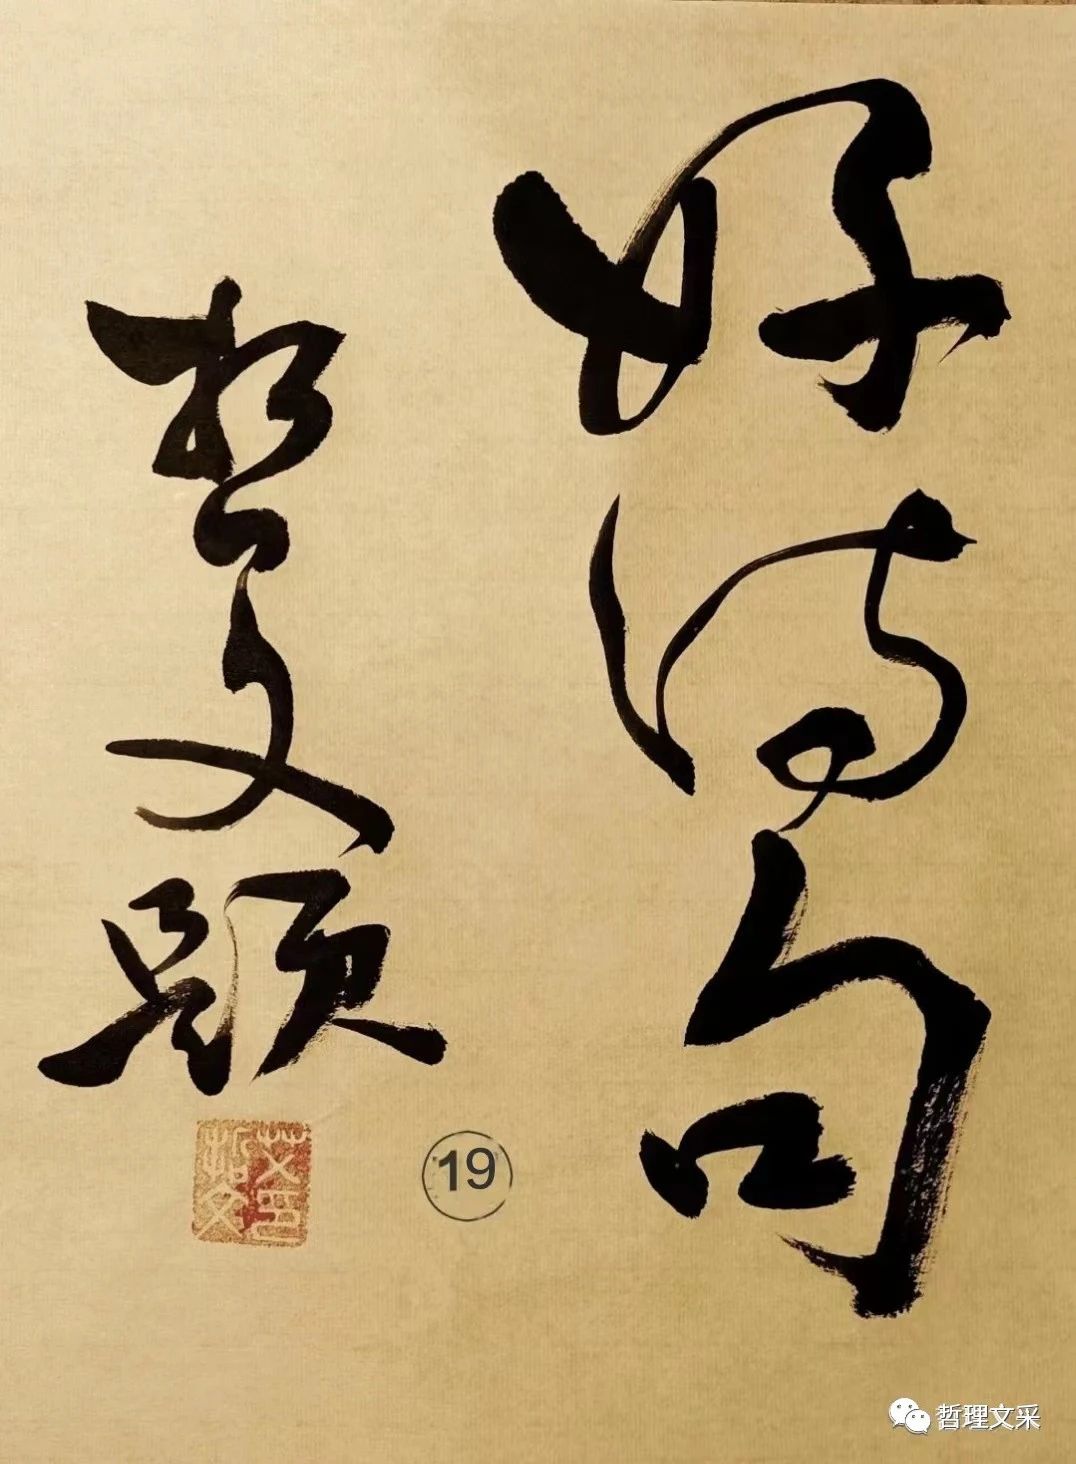 好诗句
哲文题
19
哲理文采